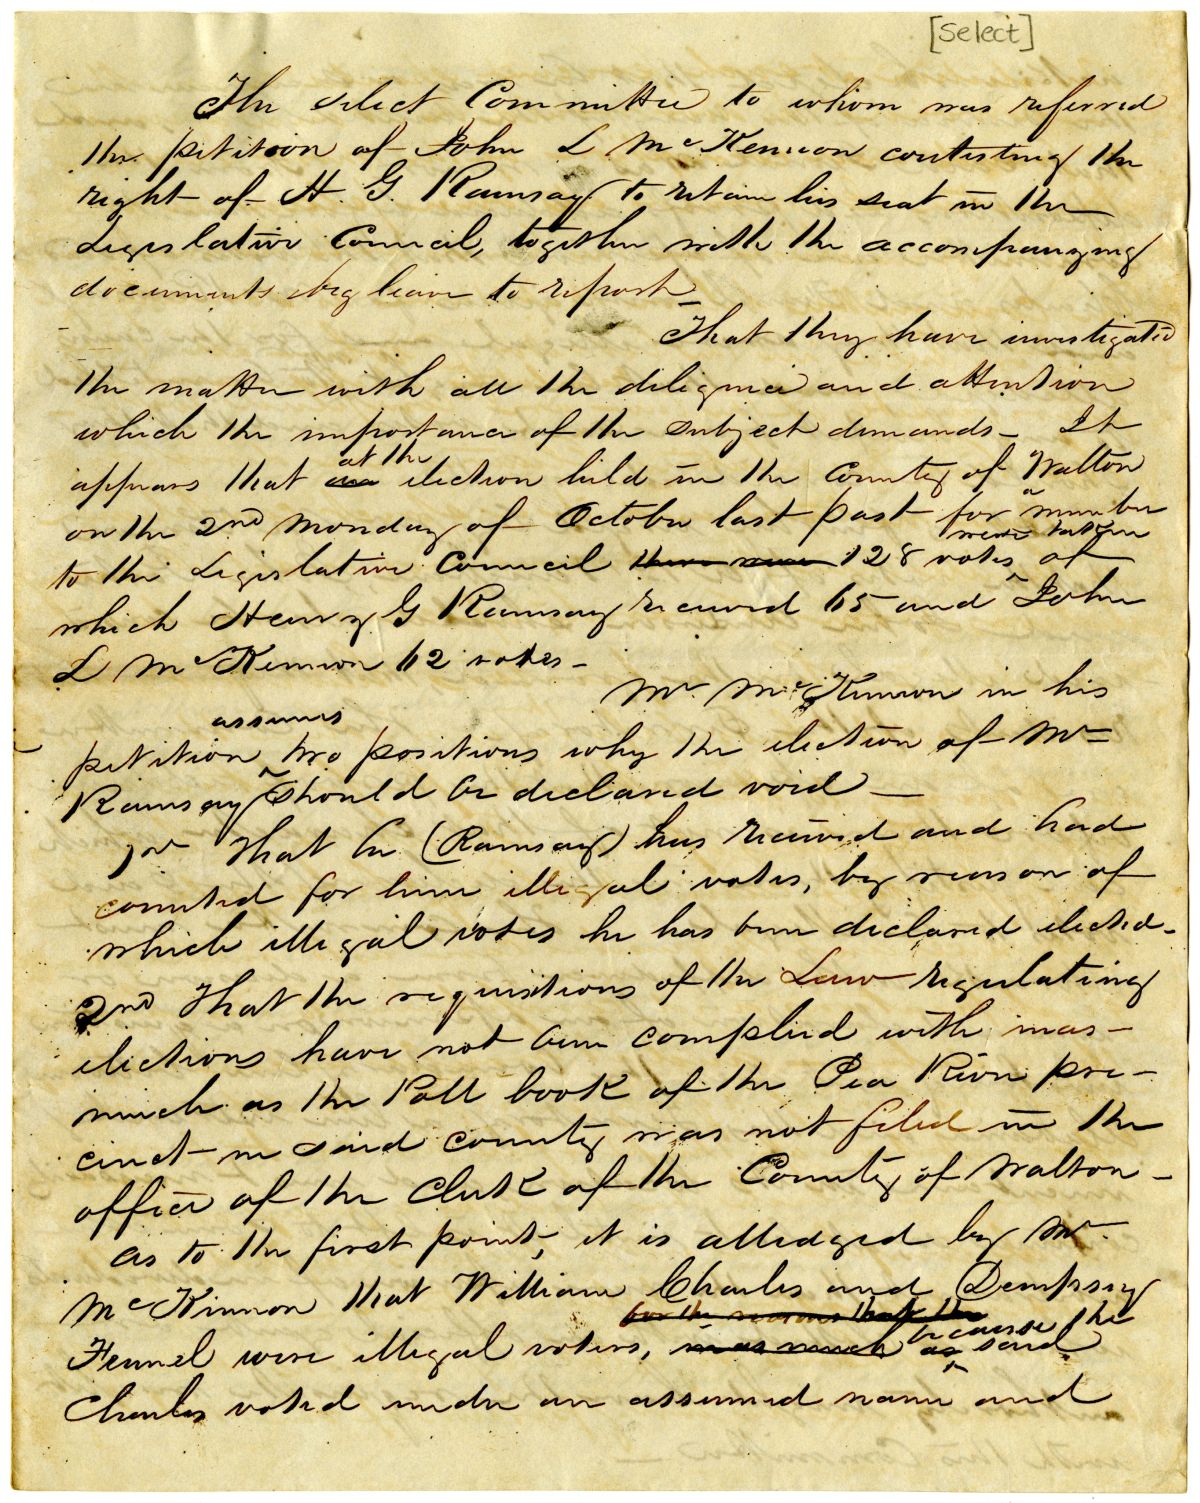 [Select]
The select Committee to whom was referred
the petition of John L McKinnon contesting the
right of H. G. Ramsay to retain his seat in the
Legislative Council, together with the accompanying
documents beg leave to report
That they have investigated
the matter with all the diligence and attention
which the importance of the subject demands - It
at the
appears that an election held in the County of Walton
on the 2nd Monday of October last past for a member
were taken
to the Legislative Council there were 128 votes of
which Henry G Ramsay received 65 and John
L McKinnon 62 votes -
Mr. McKinnon in his
assumes
petition two positions why the election of Mr
Ramsay should be declared void -
1st That he (Ramsay) has received and had
counted for him illegal votes, by reason of
which illegal votes he has been declared elected -
2nd That the requisitions of the Law regulating
elections have not been complied with inas-
much as the Poll book of the Pea River pre-
cinct in said county was not filed in the
office of the Clerk of the County of Walton -
as to the first point, it is alledged by Mr.
McKinnon that William Charles and Dempsey
for the reasons that the
because the
Fennel were illegal voters, in as much as said
Charles voted under an assumed name and